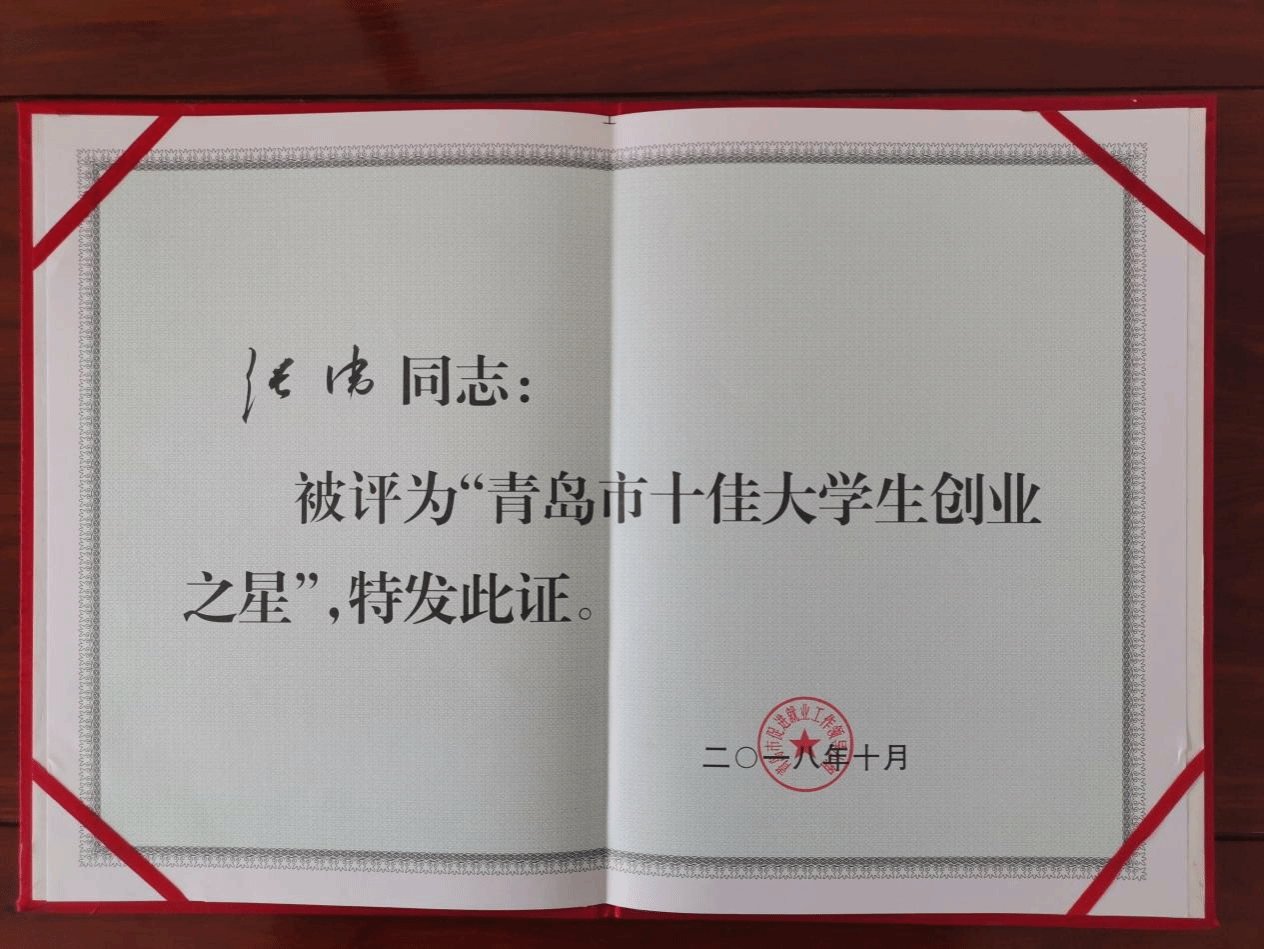 张伟同志：
被评为“青岛市十佳大学生创业
之星”，特发此证。
青岛市促进就业工作领导小组
二〇一八年十月